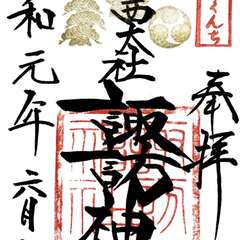 くんち
奉拝
西大社
諏訪神
和元年六月